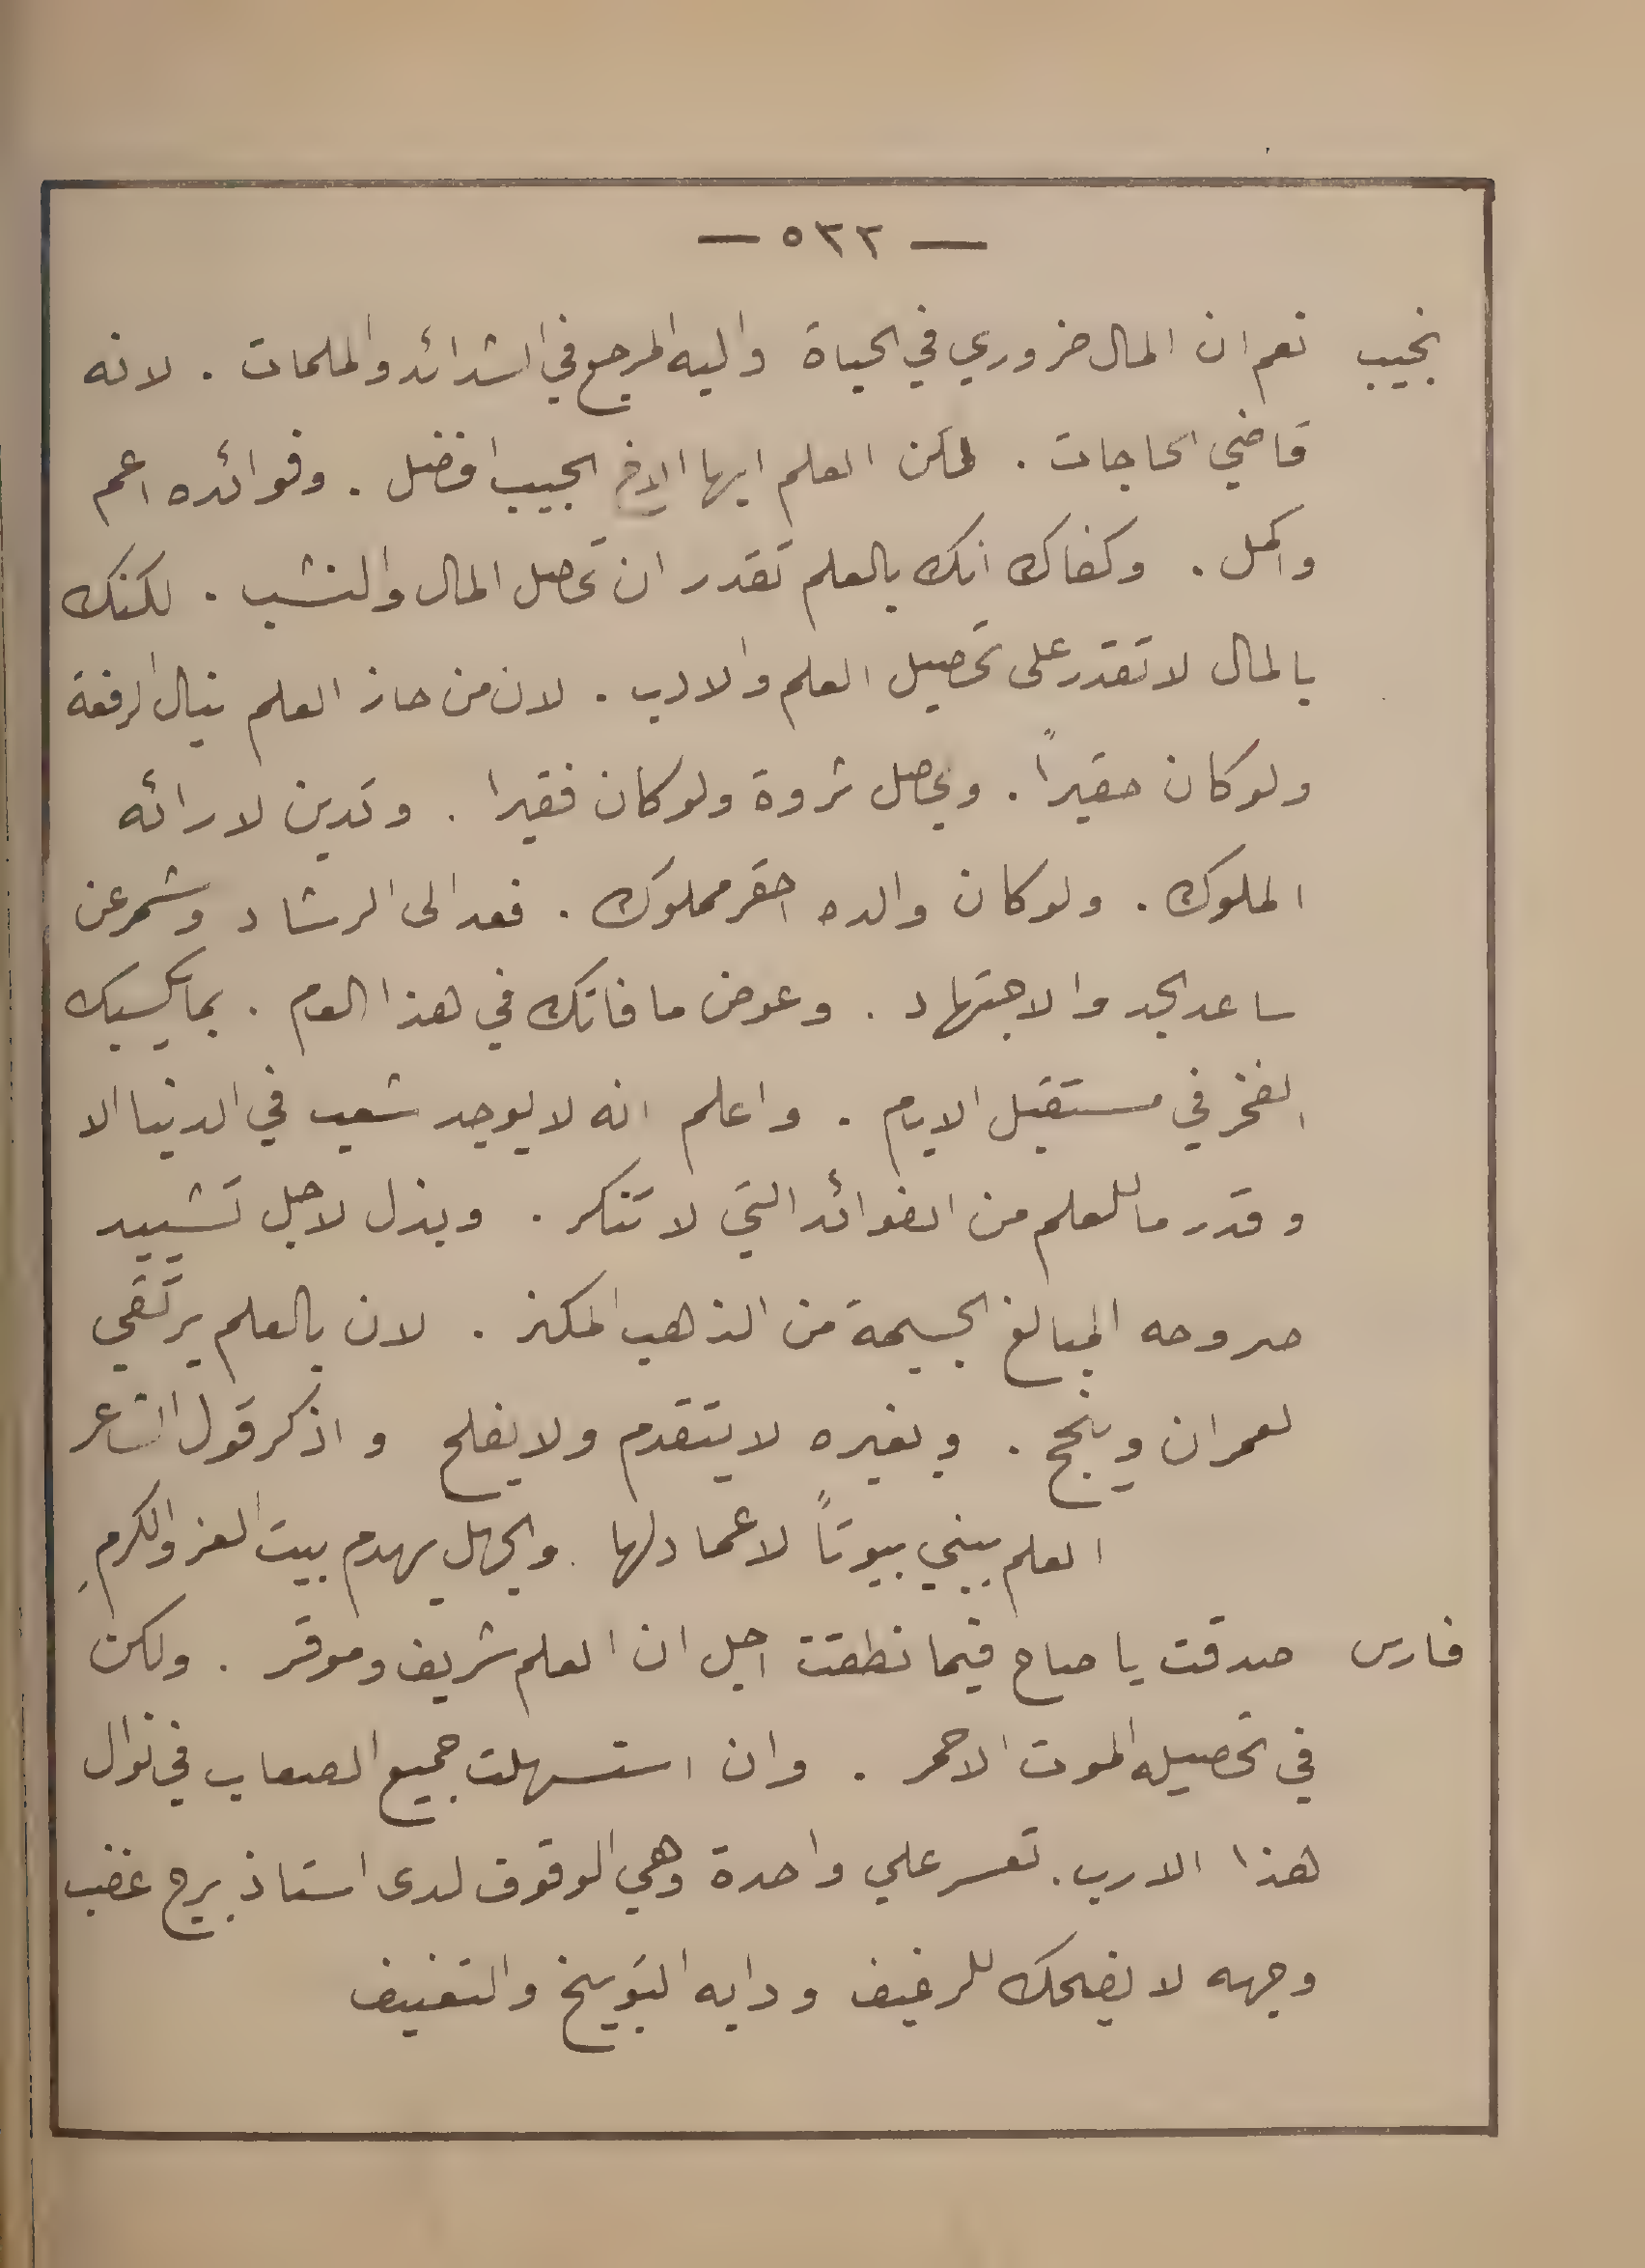 — ٥٢٢ —
نجيب نعم ان المال ضروري في الحياة واليه المرجع في الشدائد والملمات . لانه
قاضي الحاجات . لكن العلم ايها الاخ الحبيب افضل . وفوائده اعم
واكمل . وكفاك انك بالعلم تقدر ان تحصل المال والنشب . لكنك
بالمال لا تقدر على تحصيل العلم والادب . لان من حاز العلم ينال الرفعة
ولو كان حقيراً . ويحصل ثروة ولو كان فقيرا . وتدين لارائه
الملوك . ولو كان والده احقر مملوك . فعد الى الرشاد وشمر عن
ساعد الجد والاجتهاد . وعوض ما فاتك في هذا العام . بما يكسبك
الفخر في مستقبل الايام . واعلم انه لا يوجد شعب في الدنيا الا
وقدر ما للعلم من الفوائد التي لا تنكر . وبذل لاجل تشييد
صروحه المبالغ الجسيمة من الذهب المكنز . لان بالعلم يرتقي
لعمران وينجح . وبغيره لا يتقدم ولا يفلح واذكر قول الشاعر
العلم يبني بيوتاً لا عماد لها . والجهل يهدم بيت العز والكرمِ
فارس صدقت يا صاح فيما نطقت اجل ان العلم شريف وموقر . ولكن
في تحصيله الموت الاحمر . وان استسهلت جميع الصعاب في نوال
هذا الارب . تعسر علي واحدة وهي الوقوف لدى استاذ برج غضب
وجهه لا يضحك للرغيف ودابه التوبيخ والتعنيف